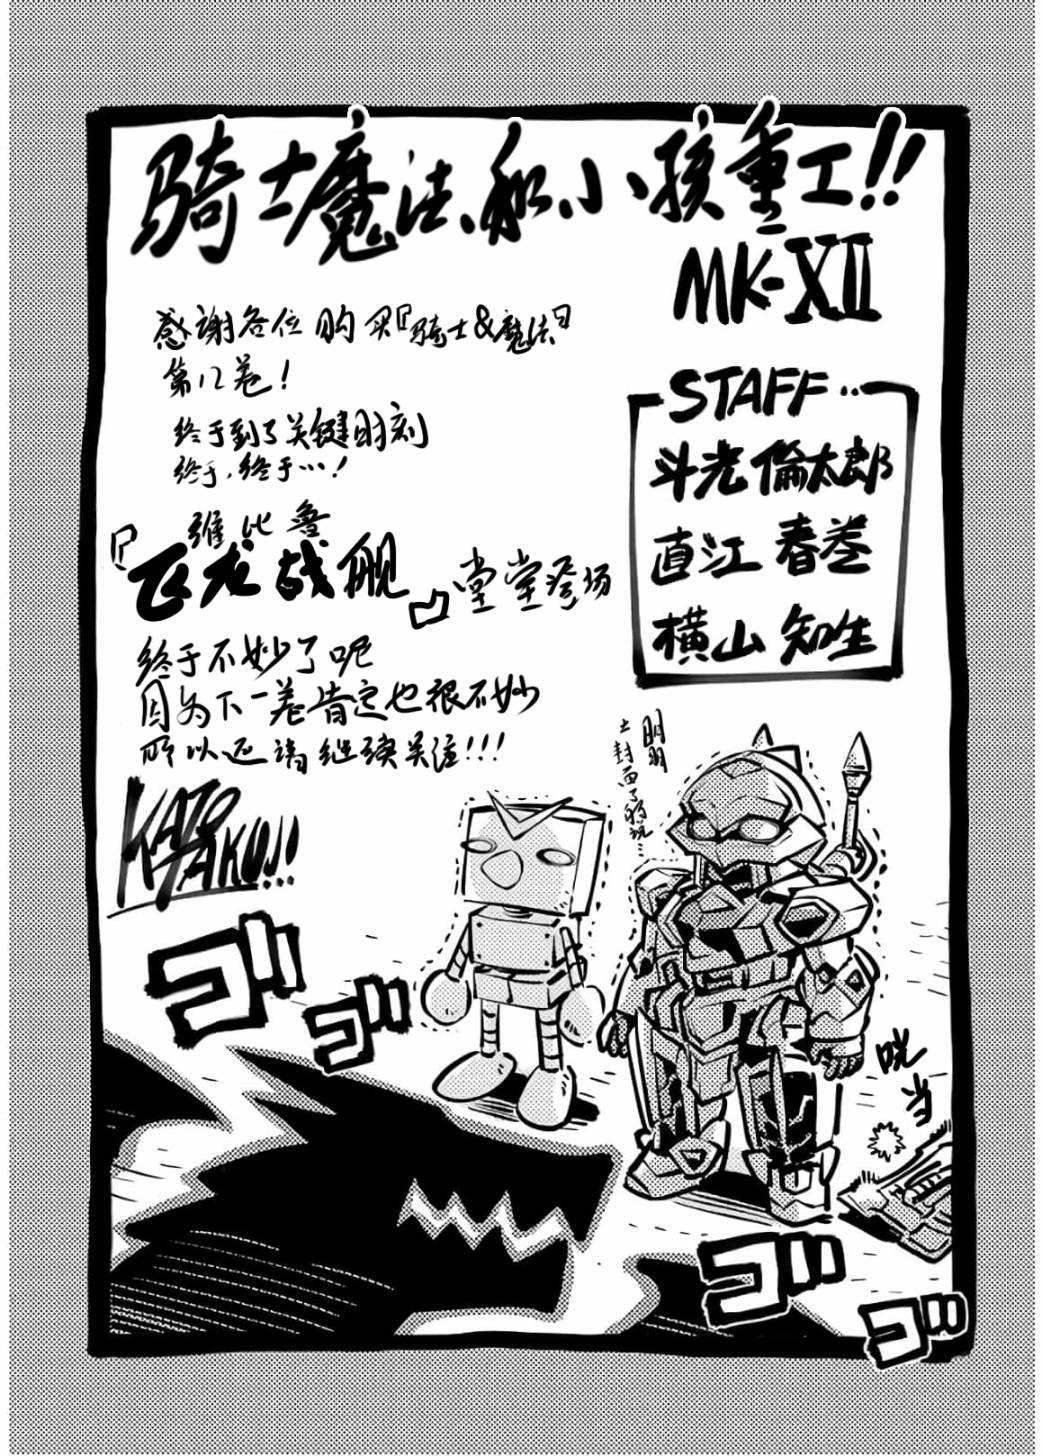 骑士魔法、和、小孩重工!!
MK-XII
感谢各位购买『骑士&魔法』
第12卷!
终于到了关键时刻
终于,终于…!
维比鲁
『飞龙战舰』堂堂登场
终于不妙了呢
因为下一卷肯定也很不妙
所以还请继续关注!!!
KATO
TAKU!!
STAFF‥
斗光倫太郎
直江 春巻
横山 知生
明明
上封面了的说…
ゴゴ
咣当
ゴゴ